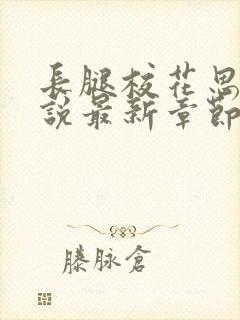 長腿校花思
說最新章節
滕脉倉